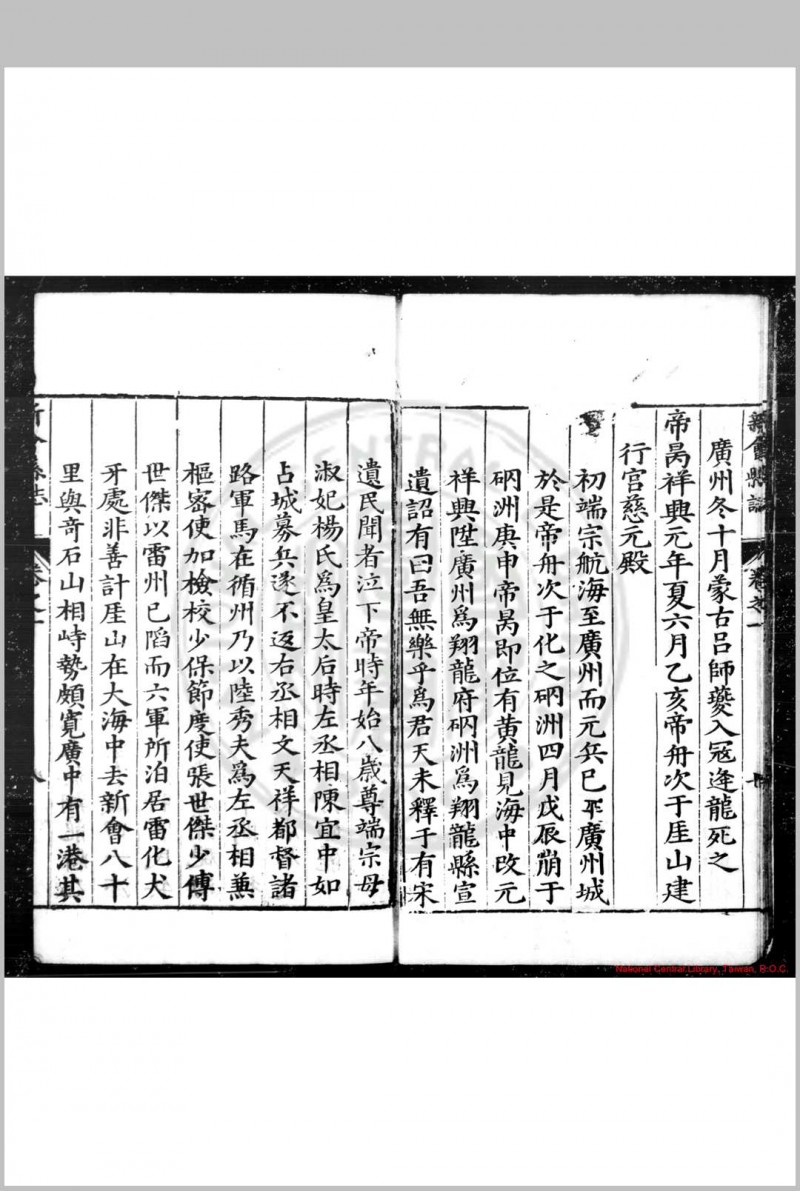 新會縣誌
卷之一
廣州冬十月蒙古呂師夔入寇逄龍死之
帝昺祥興元年夏六月乙亥帝舟次于厓山建
行宫慈元殿
初端宗航海至廣州而元兵已平廣州城
於是帝舟次于化之硇洲四月戊辰崩于
硇洲庚申帝昺即位有黄龍見海中改元
祥興陞廣州爲翔龍府硇洲爲翔龍縣宣
遺詔有曰吾無樂乎爲君天未釋于有宋
遺民聞者泣下帝時年始八歳尊端宗母
淑妃楊氏爲皇太后時左丞相陳宜中如
占城募兵遂不返右丞相文天祥都督諸
路軍馬在循州乃以陸秀夫爲左丞相兼
樞密使加檢校少保節度使張世傑少傅
世傑以雷州已䧟而六軍所泊居雷化犬
牙處非善計厓山在大海中去新會八十
里與奇石山相峙勢頗寛廣中有一港其
卷之一
八
National Central Library, Taiwan, R.O.C.